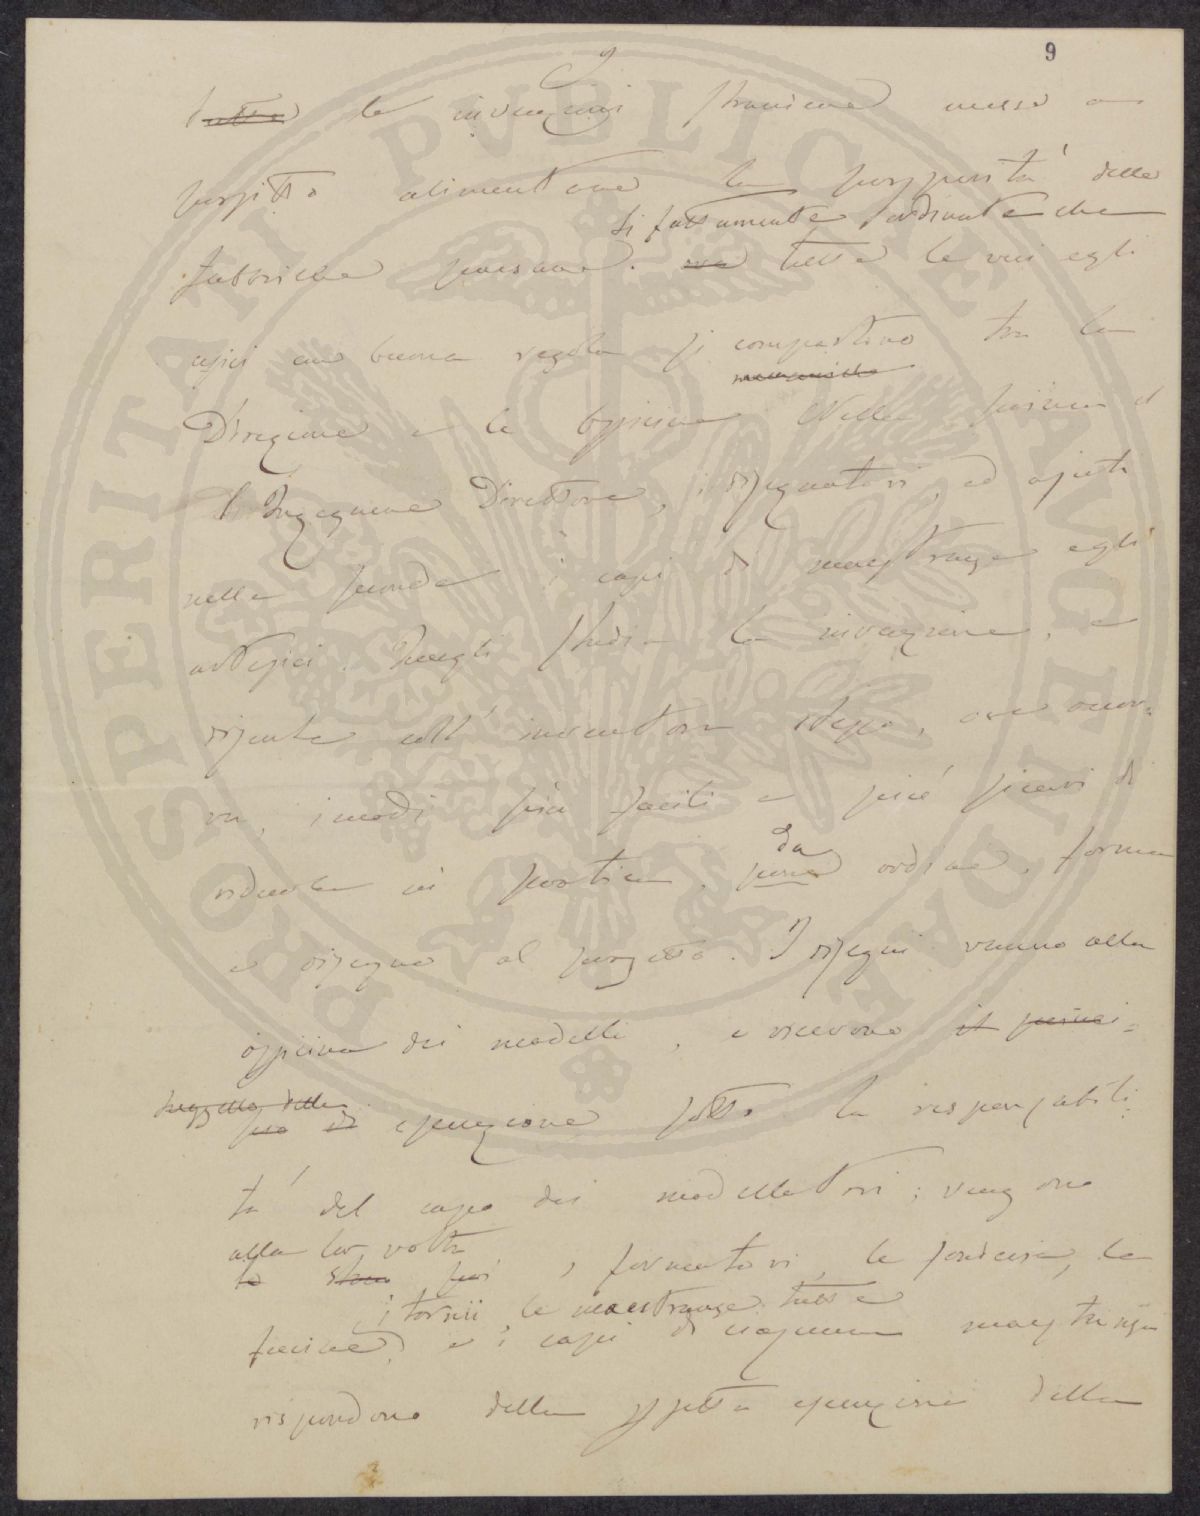 9
tutte le invenzioni straniere messe a
profitto alimentano la prosperità delle
si fattamente ordinate che
fabbriche paesane. ove tutte le
usici con buona regola si compartino tra la
Direzione e le officine Nella prima è
l'Ingegnere Direttore, i disegnatori, ed ajuti
nella seconda i capi di maestranze e gli
artefici. Quegli studia la invenzione, e
discute coll'inventore stesso, ove occor=
ra, i modi più facili e più sicuri di
ridurla in pratica,
da
ordine, forma
e disegno al progetto. I disegni vanno alla
officina dei modelli, e ricevono il princi=
suggello della
pio di esecuzione sotto la responsabili
tà del capo dei modellatori; vengono
alla lor volta
i formatori, le fonderia, le
i tornii, le maestranze tutte
fucine, e i capi di ciascuna maestranza
rispondono della esatta esecuzione della
PROSPERITATI PVBLICAE AVGENDAE